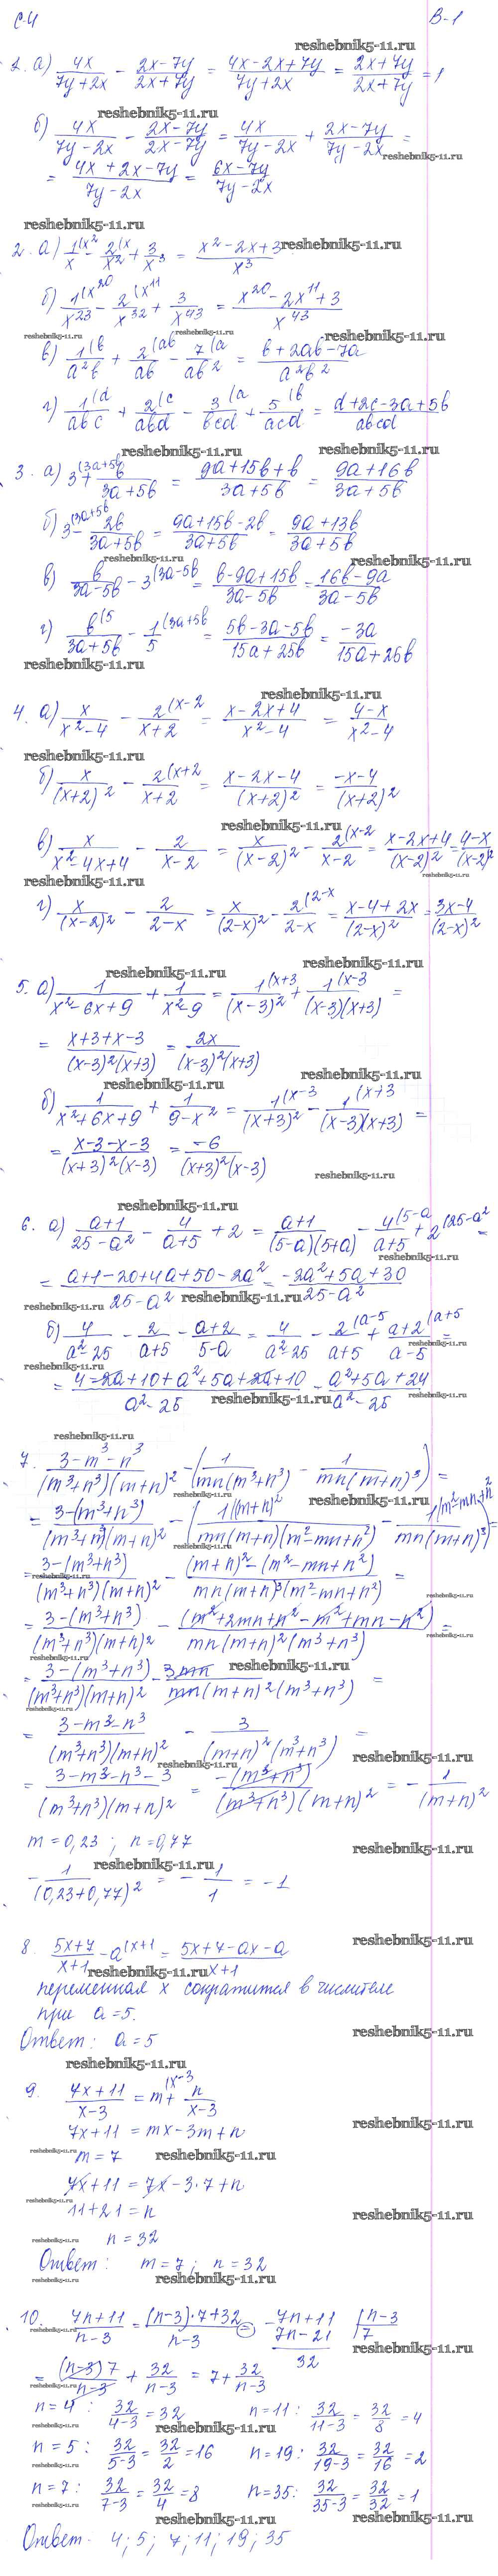 С-4 В-1
reshebnik5-11.ru
2. а) 4x/(7y+2x) - (2x-7y)/(2x+7y) = (4x-2x+7y)/(7y+2x) = (2x+7y)/(2x+7y) = 1
reshebnik5-11.ru
б) 4x/(7y-2x) - (2x-7y)/(2x-7y) = 4x/(7y-2x) + (2x-7y)/(7y-2x) =
reshebnik5-11.ru
= (4x+2x-7y)/(7y-2x) = (6x-7y)/(7y-2x)
reshebnik5-11.ru
2. а) 1(x²/x - 2(x/x² + 3/x³ = (x²-2x+3)/x³
reshebnik5-11.ru
б) 1(x²⁰/x²³ - 2(x¹¹/x³² + 3/x⁴³ = (x²⁰-2x¹¹+3)/x⁴³
reshebnik5-11.ru reshebnik5-11.ru reshebnik5-11.ru
в) 1(b/a²b + 2(ab/ab - 7(a/ab² = (b+2ab-7a)/a²b²
г) 1(d/abc + 2(c/abd - 3(a/bcd + 5(b/acd = (d+2c-3a+5b)/abcd
reshebnik5-11.ru reshebnik5-11.ru
3. а) 3(3a+5b + b/(3a+5b) = (9a+15b+b)/(3a+5b) = (9a+16b)/(3a+5b)
б) 3(3a+5b - 2b/(3a+5b) = (9a+15b-2b)/(3a+5b) = (9a+13b)/(3a+5b)
reshebnik5-11.ru reshebnik5-11.ru
в) b/(3a-5b) - 3(3a-5b = (b-9a+15b)/(3a-5b) = (16b-9a)/(3a-5b)
г) b(5/(3a+5b) - 1(3a+5b/5 = (5b-3a-5b)/(15a+25b) = -3a/(15a+25b)
reshebnik5-11.ru
reshebnik5-11.ru
4. а) x/(x²-4) - 2(x-2/(x+2) = (x-2x+4)/(x²-4) = (4-x)/(x²-4)
reshebnik5-11.ru
б) x/(x+2)² - 2(x+2/(x+2) = (x-2x-4)/(x+2)² = (-x-4)/(x+2)²
reshebnik5-11.ru
в) x/(x²-4x+4) - 2/(x-2) = x/(x-2)² - 2(x-2/(x-2) = (x-2x+4)/(x-2)² = (4-x)/(x-2)²
reshebnik5-11.ru
г) x/(x-2)² - 2/(2-x) = x/(2-x)² - 2(2-x/(2-x) = (x-4+2x)/(2-x)² = (3x-4)/(2-x)²
reshebnik5-11.ru
reshebnik5-11.ru
5. а) 1/(x²-6x+9) + 1/(x²-9) = 1(x+3/(x-3)² + 1(x-3/(x-3)(x+3) =
= (x+3+x-3)/(x-3)²(x+3) = 2x/(x-3)²(x+3)
reshebnik5-11.ru reshebnik5-11.ru
б) 1/(x²+6x+9) + 1/(9-x²) = 1(x-3/(x+3)² - 1(x+3/(x-3)(x+3) =
= (x-3-x-3)/(x+3)²(x-3) = -6/(x+3)²(x-3)
reshebnik5-11.ru
reshebnik5-11.ru
6. а) (a+1)/(25-a²) - 4/(a+5) + 2 = (a+1)/(5-a)(5+a) - 4(5-a/(a+5) + 2(25-a² =
reshebnik5-11.ru
= (a+1-20+4a+50-2a²)/(25-a²) = (-2a²+5a+30)/(25-a²)
reshebnik5-11.ru reshebnik5-11.ru
б) 4/(a²-25) - 2/(a+5) - (a+2)/(5-a) = 4/(a²-25) - 2(a-5/(a+5) + (a+2(a+5)/(a-5) =
reshebnik5-11.ru reshebnik5-11.ru
= (4-2a+10+a²+5a+2a+10)/(a²-25) = (a²+5a+24)/(a²-25)
reshebnik5-11.ru
reshebnik5-11.ru
7. (3-m³-n³)/(m³+n³)(m+n)² - (1/mn(m³+n³) - 1/mn(m+n)³) =
reshebnik5-11.ru reshebnik5-11.ru
= (3-(m³+n³))/(m³+n³)(m+n)² - (1((m+n)²/mn(m+n)(m²-mn+n²) - 1(m²-mn+n²/mn(m+n)³) =
reshebnik5-11.ru
= (3-(m³+n³))/(m³+n³)(m+n)² - ((m+n)²-(m²-mn+n²))/mn(m+n)³(m²-mn+n²) =
reshebnik5-11.ru reshebnik5-11.ru
= (3-(m³+n³))/(m³+n³)(m+n)² - (m²+2mn+n²-m²+mn-n²)/mn(m+n)²(m³+n³) =
reshebnik5-11.ru
= (3-(m³+n³))/(m³+n³)(m+n)² - 3mn/mn(m+n)²(m³+n³) =
reshebnik5-11.ru reshebnik5-11.ru
= (3-m³-n³)/(m³+n³)(m+n)² - 3/(m+n)²(m³+n³) =
reshebnik5-11.ru reshebnik5-11.ru
= (3-m³-n³-3)/(m³+n³)(m+n)² = -(m³+n³)/(m³+n³)(m+n)² = - 1/(m+n)²
m = 0,23 ; n = 0,77
reshebnik5-11.ru
reshebnik5-11.ru
- 1/(0,23+0,77)² = - 1/1 = -1
reshebnik5-11.ru
8. (5x+7)/(x+1) - a(x+1 = (5x+7-ax-a)/(x+1)
reshebnik5-11.ru reshebnik5-11.ru
переменная x сократится в числителе
при a=5.
Ответ: a=5
reshebnik5-11.ru
reshebnik5-11.ru
9. (7x+11)/(x-3) = m(x-3 + n/(x-3)
reshebnik5-11.ru
7x+11 = mx-3m+n
reshebnik5-11.ru reshebnik5-11.ru
m = 7
7x+11 = 7x-3·7+n
reshebnik5-11.ru reshebnik5-11.ru
11+21 = n
n = 32
reshebnik5-11.ru reshebnik5-11.ru
Ответ: m=7; n=32
reshebnik5-11.ru reshebnik5-11.ru
10. (7n+11)/(n-3) = ((n-3)·7+32)/(n-3) = - 7n+11 | n-3
reshebnik5-11.ru 7n-21 7
32 reshebnik5-11.ru
= (n-3)7/(n-3) + 32/(n-3) = 7 + 32/(n-3)
reshebnik5-11.ru
n=4: 32/(4-3) = 32 n=11: 32/(11-3) = 32/8 = 4
reshebnik5-11.ru reshebnik5-11.ru reshebnik5-11.ru
n=5: 32/(5-3) = 32/2 = 16 n=19: 32/(19-3) = 32/16 = 2
reshebnik5-11.ru reshebnik5-11.ru
n=7: 32/(7-3) = 32/4 = 8 n=35: 32/(35-3) = 32/32 = 1
reshebnik5-11.ru reshebnik5-11.ru reshebnik5-11.ru
Ответ: 4; 5; 7; 11; 19; 35
reshebnik5-11.ru